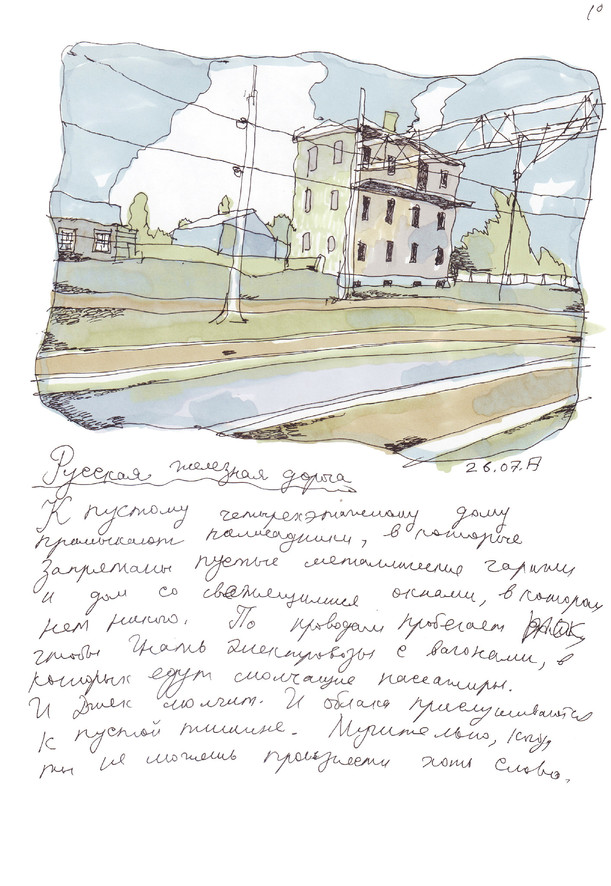 10
26.07.А
Русская железная дорога
К пустому четырехэтажному дому
примыкают палисадники, в которые
запрятаны пустые металлические гаражи
и дом со светящимися окнами, в котором
нет никого. По проводам пробегает
чтобы гнать электровозы с вагонами, в
которых едут молчащие пассажиры.
И Джек молчит. И облака прислушиваются
к пустой тишине. Мучительно, когда
ты не можешь произнести хоть слово.